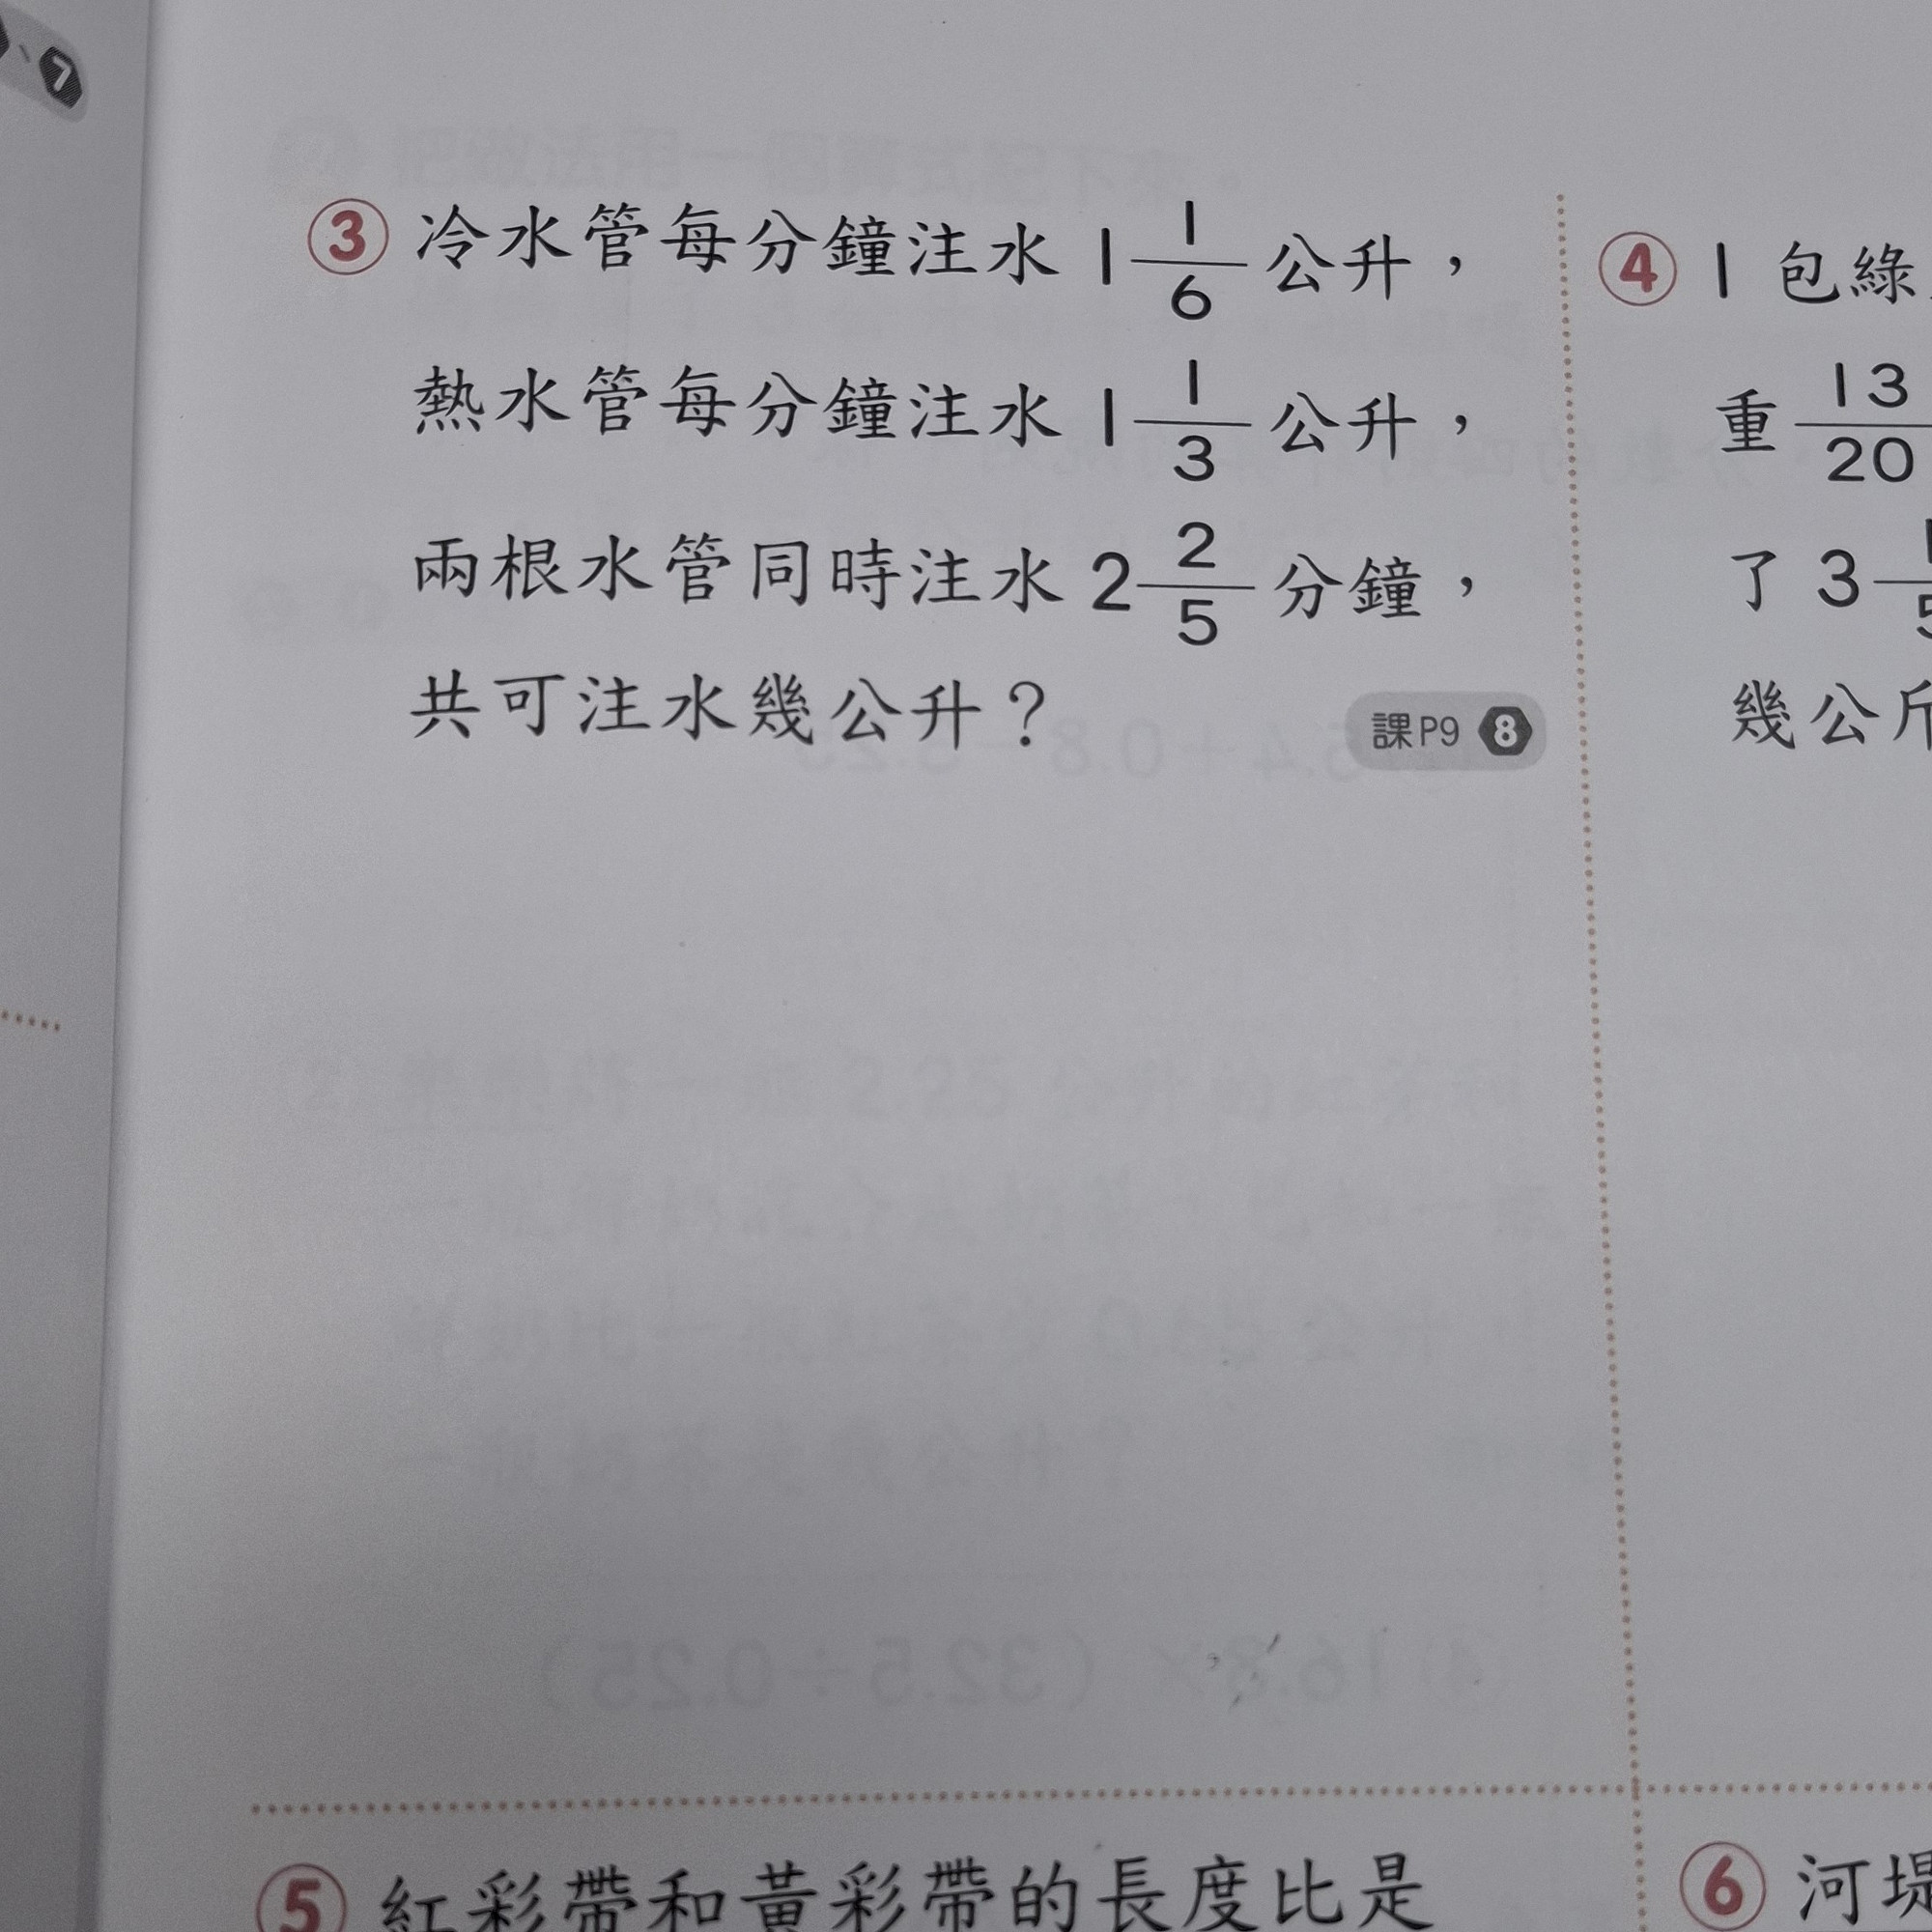 、7
③ 冷水管每分鐘注水 1 1/6 公升，
熱水管每分鐘注水 1 1/3 公升，
兩根水管同時注水 2 2/5 分鐘，
共可注水幾公升？
課P9 8
④ 1 包綠
重 13/20
了 3
幾公斤
⑤ 紅彩帶和黃彩帶的長度比是
⑥ 河堤